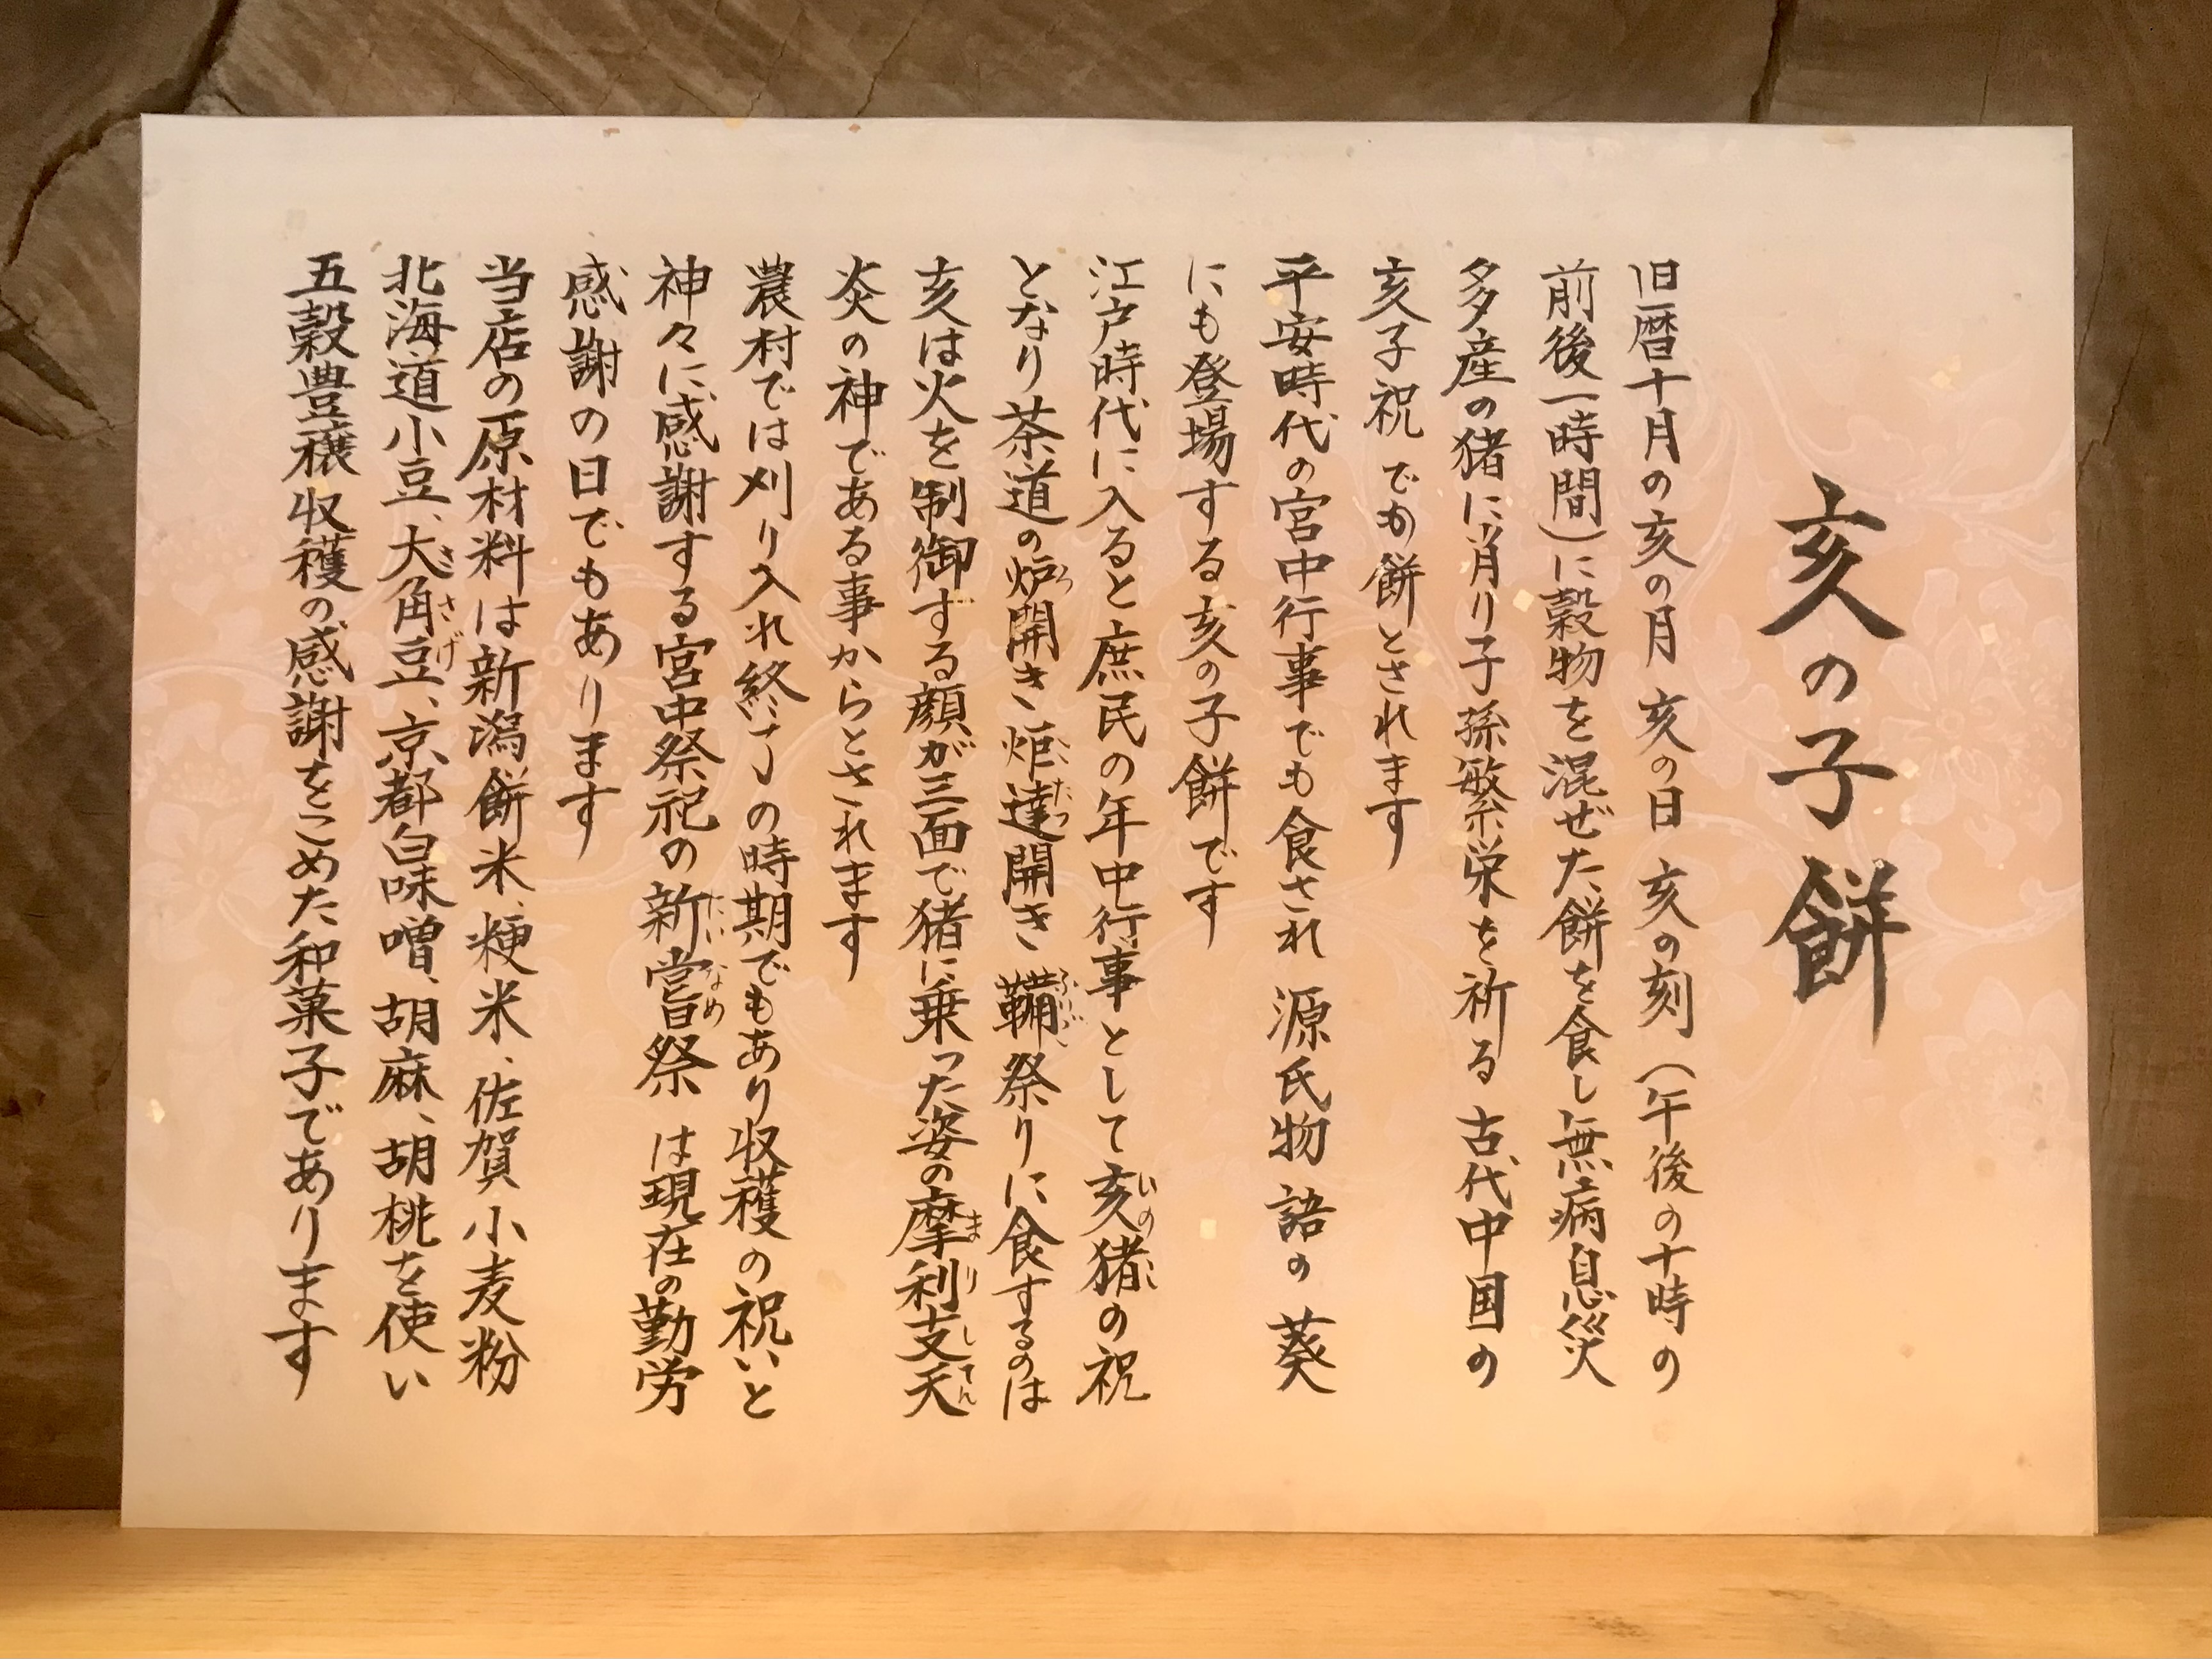 亥の子餅
旧暦十月の亥の月 亥の日 亥の刻(午後の十時の
前後一時間)に穀物を混ぜた、餅を食し無病息災
多産の猪に肖り子孫繁栄を祈る 古代中国の
亥子祝 でお餅とされます
平安時代の宮中行事でも食され 源氏物語の葵
にも登場する亥の子餅です
江戸時代に入ると庶民の年中行事として亥猪の祝
いのこ
となり茶道の炉開き炬達開き 鞴祭りに食するのは
ろ こたつ ふいご
亥は火を制御する顔が三面で猪に乗った姿の摩利支天
まりしてん
炎の神である事からとされます
農村では刈り入れ終了の時期でもあり収穫の祝いと
神々に感謝する宮中祭祀の新嘗祭 は現在の勤労
にいなめ
感謝の日でもあります
当店の原材料は新潟餅米、粳米、佐賀小麦粉
北海道小豆、大角豆、京都白味噌、胡麻、胡桃を使い
ささげ
五穀豊穣収穫の感謝をこめた和菓子であります